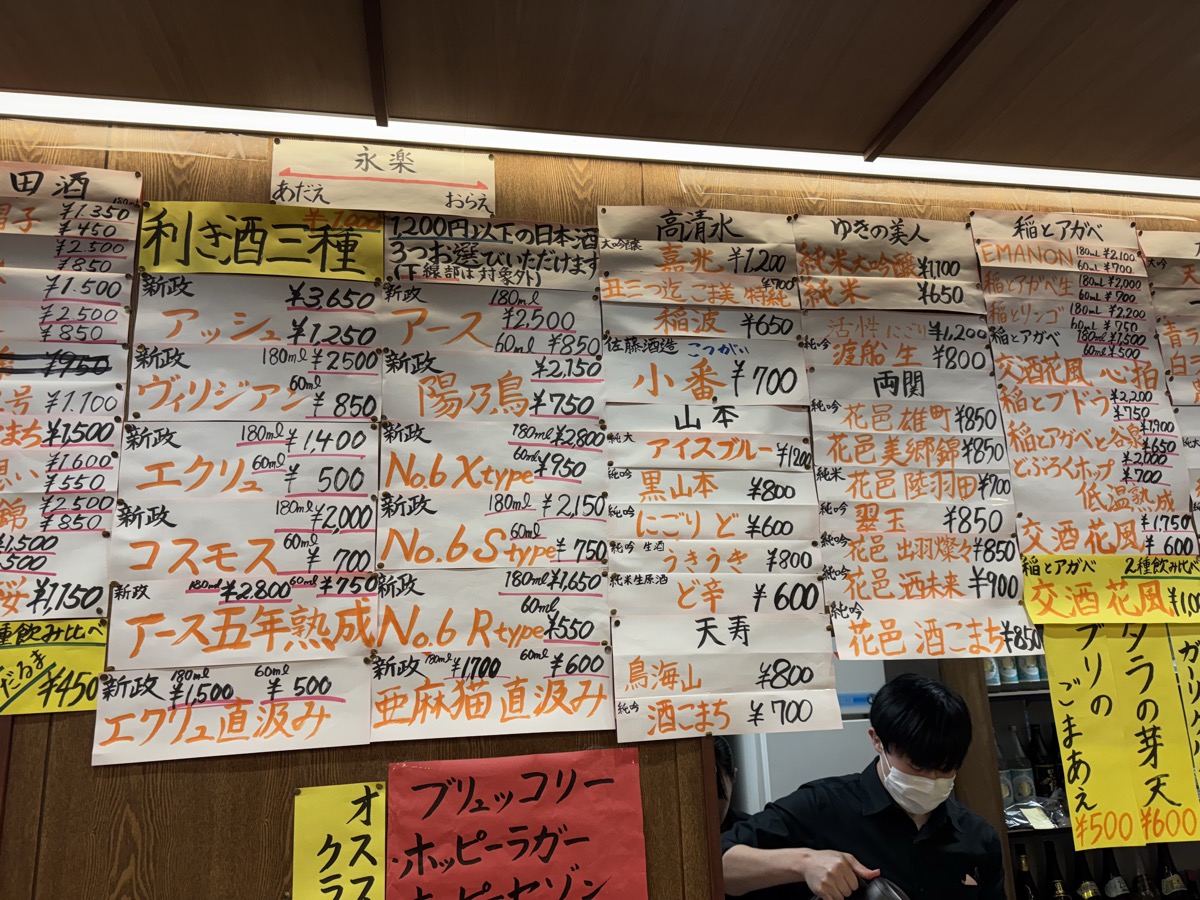 永楽
あだえ おらえ
田酒
¥1,350
¥450
¥2,500
¥850
¥1,500
¥2,500
¥850
¥950
¥1,100
¥1,500
¥1,600
¥550
¥2,500
¥850
¥1,500
¥1,150
¥450
利き酒三種
¥1,000
新政
¥3,650
アッシュ ¥1,250
新政 180ml ¥2500
ヴィリジアン 60ml ¥850
新政 180ml ¥1,400
エクリュ 60ml ¥500
新政 180ml ¥2,000
コスモス 60ml ¥700
新政 180ml ¥2,800 60ml ¥750
アース五年熟成
新政 180ml ¥1,500 60ml ¥500
エクリュ直汲み
1,200円以下の日本酒
3つお選びいただけます
(下線部は対象外)
新政 180ml
アース ¥2,500
60ml ¥850
新政 ¥2,150
陽乃鳥 ¥750
新政 180ml ¥2800
No.6 Xtype 60ml ¥950
新政 180ml ¥2,150
No.6 Stype 60ml ¥750
新政 180ml ¥1,650
No.6 Rtype 60ml ¥550
新政 180ml ¥1,700 60ml ¥600
亜麻猫直汲み
高清水
大吟醸 嘉兆 ¥1,200
¥700
稲波 ¥650
佐藤酒造 こつがい
小番 ¥700
山本
純大 アイスブルー ¥1200
純吟 黒山本 ¥800
純吟 にごりど ¥600
純吟 生酒 うきうき ¥800
純米生原酒 ど辛 ¥600
天寿
鳥海山 ¥800
純吟 酒こまち ¥700
ゆきの美人
純米大吟醸 ¥1,100
純米 ¥650
活性にごり ¥1,200
純吟 渡船 生 ¥800
両関
純吟 花邑 雄町 ¥850
花邑 美郷錦 ¥850
純米 花邑 陸羽田 ¥700
純吟 翠玉 ¥850
純吟 花邑 出羽燦々 ¥850
純吟 花邑 酒未来 ¥900
純吟
花邑 酒こまち ¥850
稲とアガベ
EMANON 180ml ¥2,100
60ml ¥700
稲とアガベ生 180ml ¥2,000
60ml ¥700
稲とリンゴ 180ml ¥2,200
60ml ¥750
稲とアガベ 180ml ¥1,500
60ml ¥500
交酒花風 心拍
¥2,200
稲とブドウ ¥750
¥1,900
稲とアガベと谷泉 ¥650
¥2,000
どぶろくホップ ¥700
低温熟成
¥1,750
交酒花風 ¥600
稲とアガベ 2種飲み比べ
交酒花風
ブリの
ごまあえ
¥500
タラの芽天
¥600
オススス
クラ
ブリュッコリー
ホッピーラガー
ホッピーセゾン